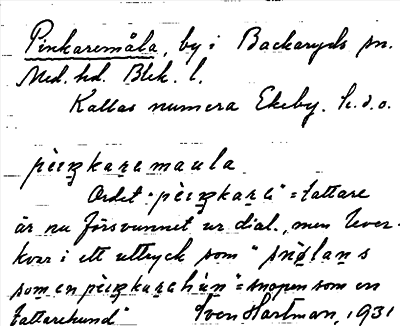 Pinkaremåla, by i Backaryds sn.
Med. hd. Blek. l.
Kallas numera Ekeby. h.d.o.
pìŋkaremaula
Ordet "pìŋkare" = tattare
är nu försvunnet ur dial., men lever
kvar i ett uttryck som "snølans
som en pìŋkarehùn" = snopen som en
tattarehund" Sven Hartman, 1931